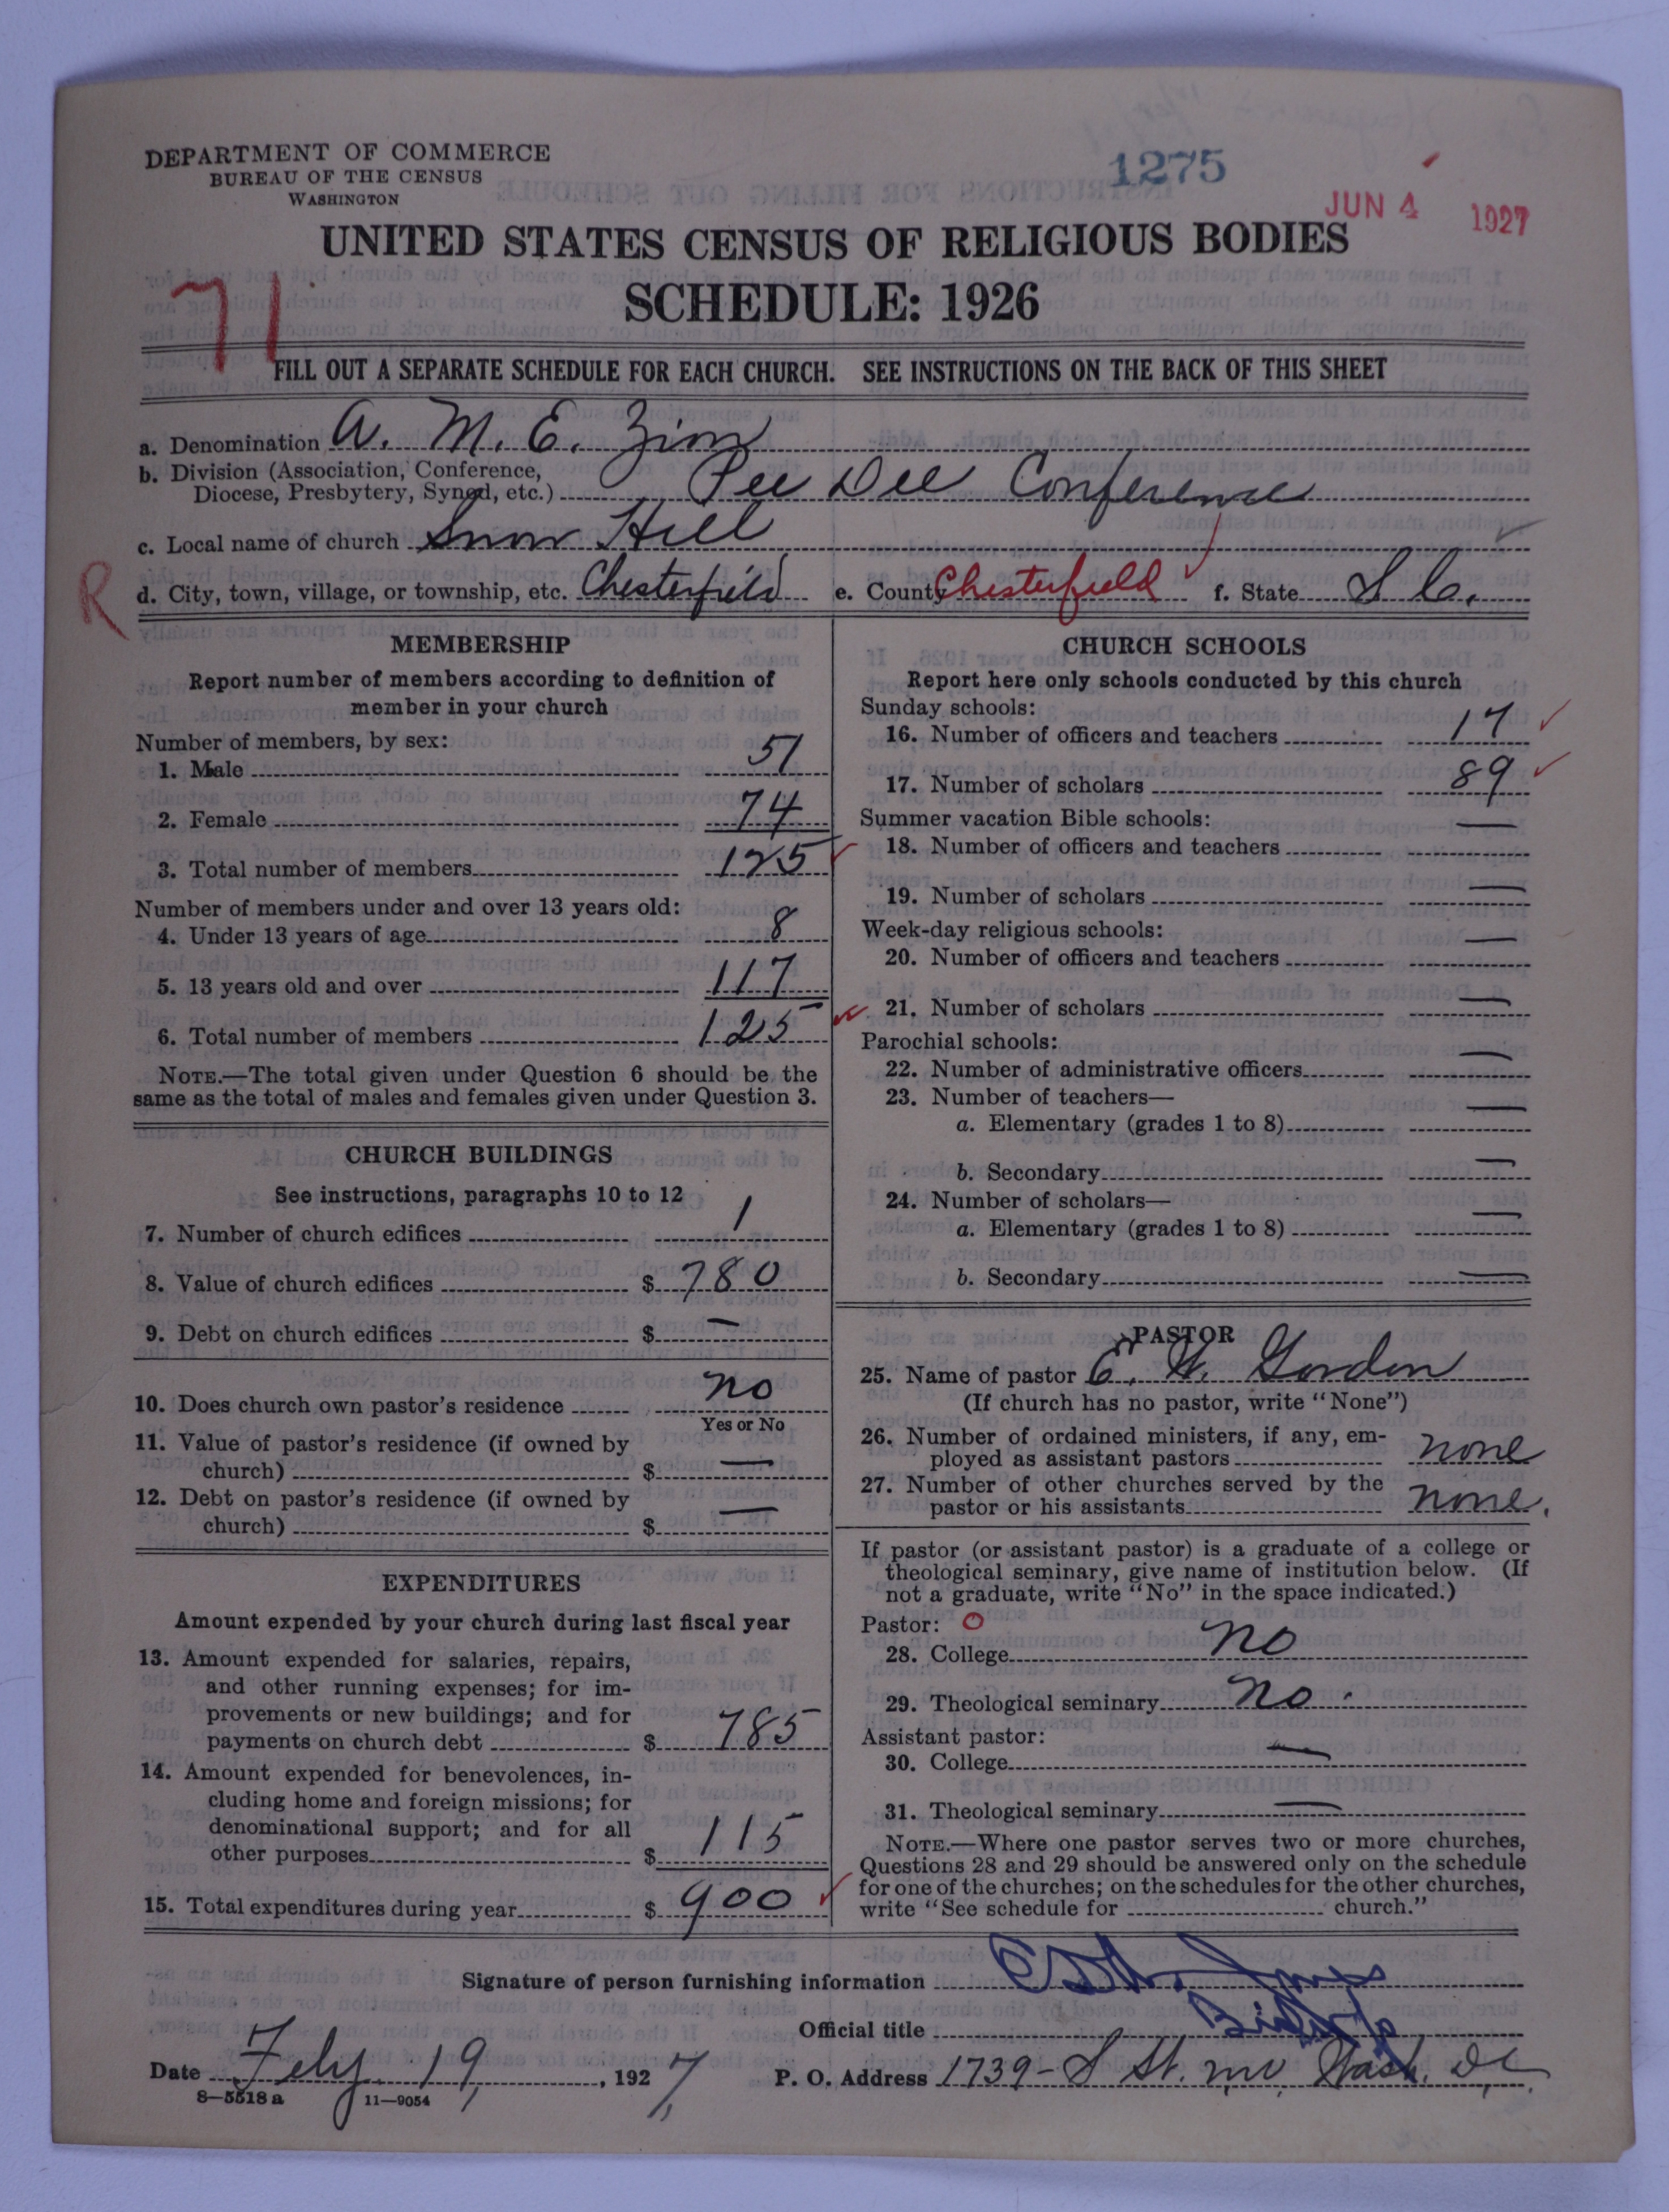 DEPARTMENT OF COMMERCE
BUREAU OF THE CENSUS
WASHINGTON
1275
JUN 4 1927
UNITED STATES CENSUS OF RELIGIOUS BODIES
SCHEDULE: 1926
71
FILL OUT A SEPARATE SCHEDULE FOR EACH CHURCH. SEE INSTRUCTIONS ON THE BACK OF THIS SHEET
a. Denomination A. M. E. Zion
b. Division (Association, Conference,
Diocese, Presbytery, Synod, etc.) Pee Dee Conference
c. Local name of church Snow Hill
R
d. City, town, village, or township, etc. Chesterfield e. County Chesterfield f. State S C.
MEMBERSHIP
Report number of members according to definition of
member in your church
Number of members, by sex:
1. Male 51
2. Female 74
3. Total number of members 125
Number of members under and over 13 years old:
4. Under 13 years of age 8
5. 13 years old and over 117
6. Total number of members 125
NOTE.—The total given under Question 6 should be the
same as the total of males and females given under Question 3.
CHURCH BUILDINGS
See instructions, paragraphs 10 to 12
7. Number of church edifices 1
8. Value of church edifices $ 780
9. Debt on church edifices $ —
10. Does church own pastor's residence no
Yes or No
11. Value of pastor's residence (if owned by
church) $ —
12. Debt on pastor's residence (if owned by
church) $ —
EXPENDITURES
Amount expended by your church during last fiscal year
13. Amount expended for salaries, repairs,
and other running expenses; for im-
provements or new buildings; and for
payments on church debt $ 785
14. Amount expended for benevolences, in-
cluding home and foreign missions; for
denominational support; and for all
other purposes $ 115
15. Total expenditures during year $ 900
CHURCH SCHOOLS
Report here only schools conducted by this church
Sunday schools:
16. Number of officers and teachers 17
17. Number of scholars 89
Summer vacation Bible schools:
18. Number of officers and teachers —
19. Number of scholars —
Week-day religious schools:
20. Number of officers and teachers —
21. Number of scholars —
Parochial schools:
22. Number of administrative officers —
23. Number of teachers—
a. Elementary (grades 1 to 8) —
b. Secondary —
24. Number of scholars—
a. Elementary (grades 1 to 8) —
b. Secondary —
PASTOR
25. Name of pastor C. W. Gordon
(If church has no pastor, write "None")
26. Number of ordained ministers, if any, em-
ployed as assistant pastors none
27. Number of other churches served by the
pastor or his assistants none.
If pastor (or assistant pastor) is a graduate of a college or
theological seminary, give name of institution below. (If
not a graduate, write "No" in the space indicated.)
Pastor: O
28. College no
29. Theological seminary no.
Assistant pastor:
30. College —
31. Theological seminary —
NOTE.—Where one pastor serves two or more churches,
Questions 28 and 29 should be answered only on the schedule
for one of the churches; on the schedules for the other churches,
write "See schedule for church."
Signature of person furnishing information
Official title Bishop
Date Feby. 19, 1927, P. O. Address 1739- S St. nw, Wash. D.C.
8-5518 a 11-9054